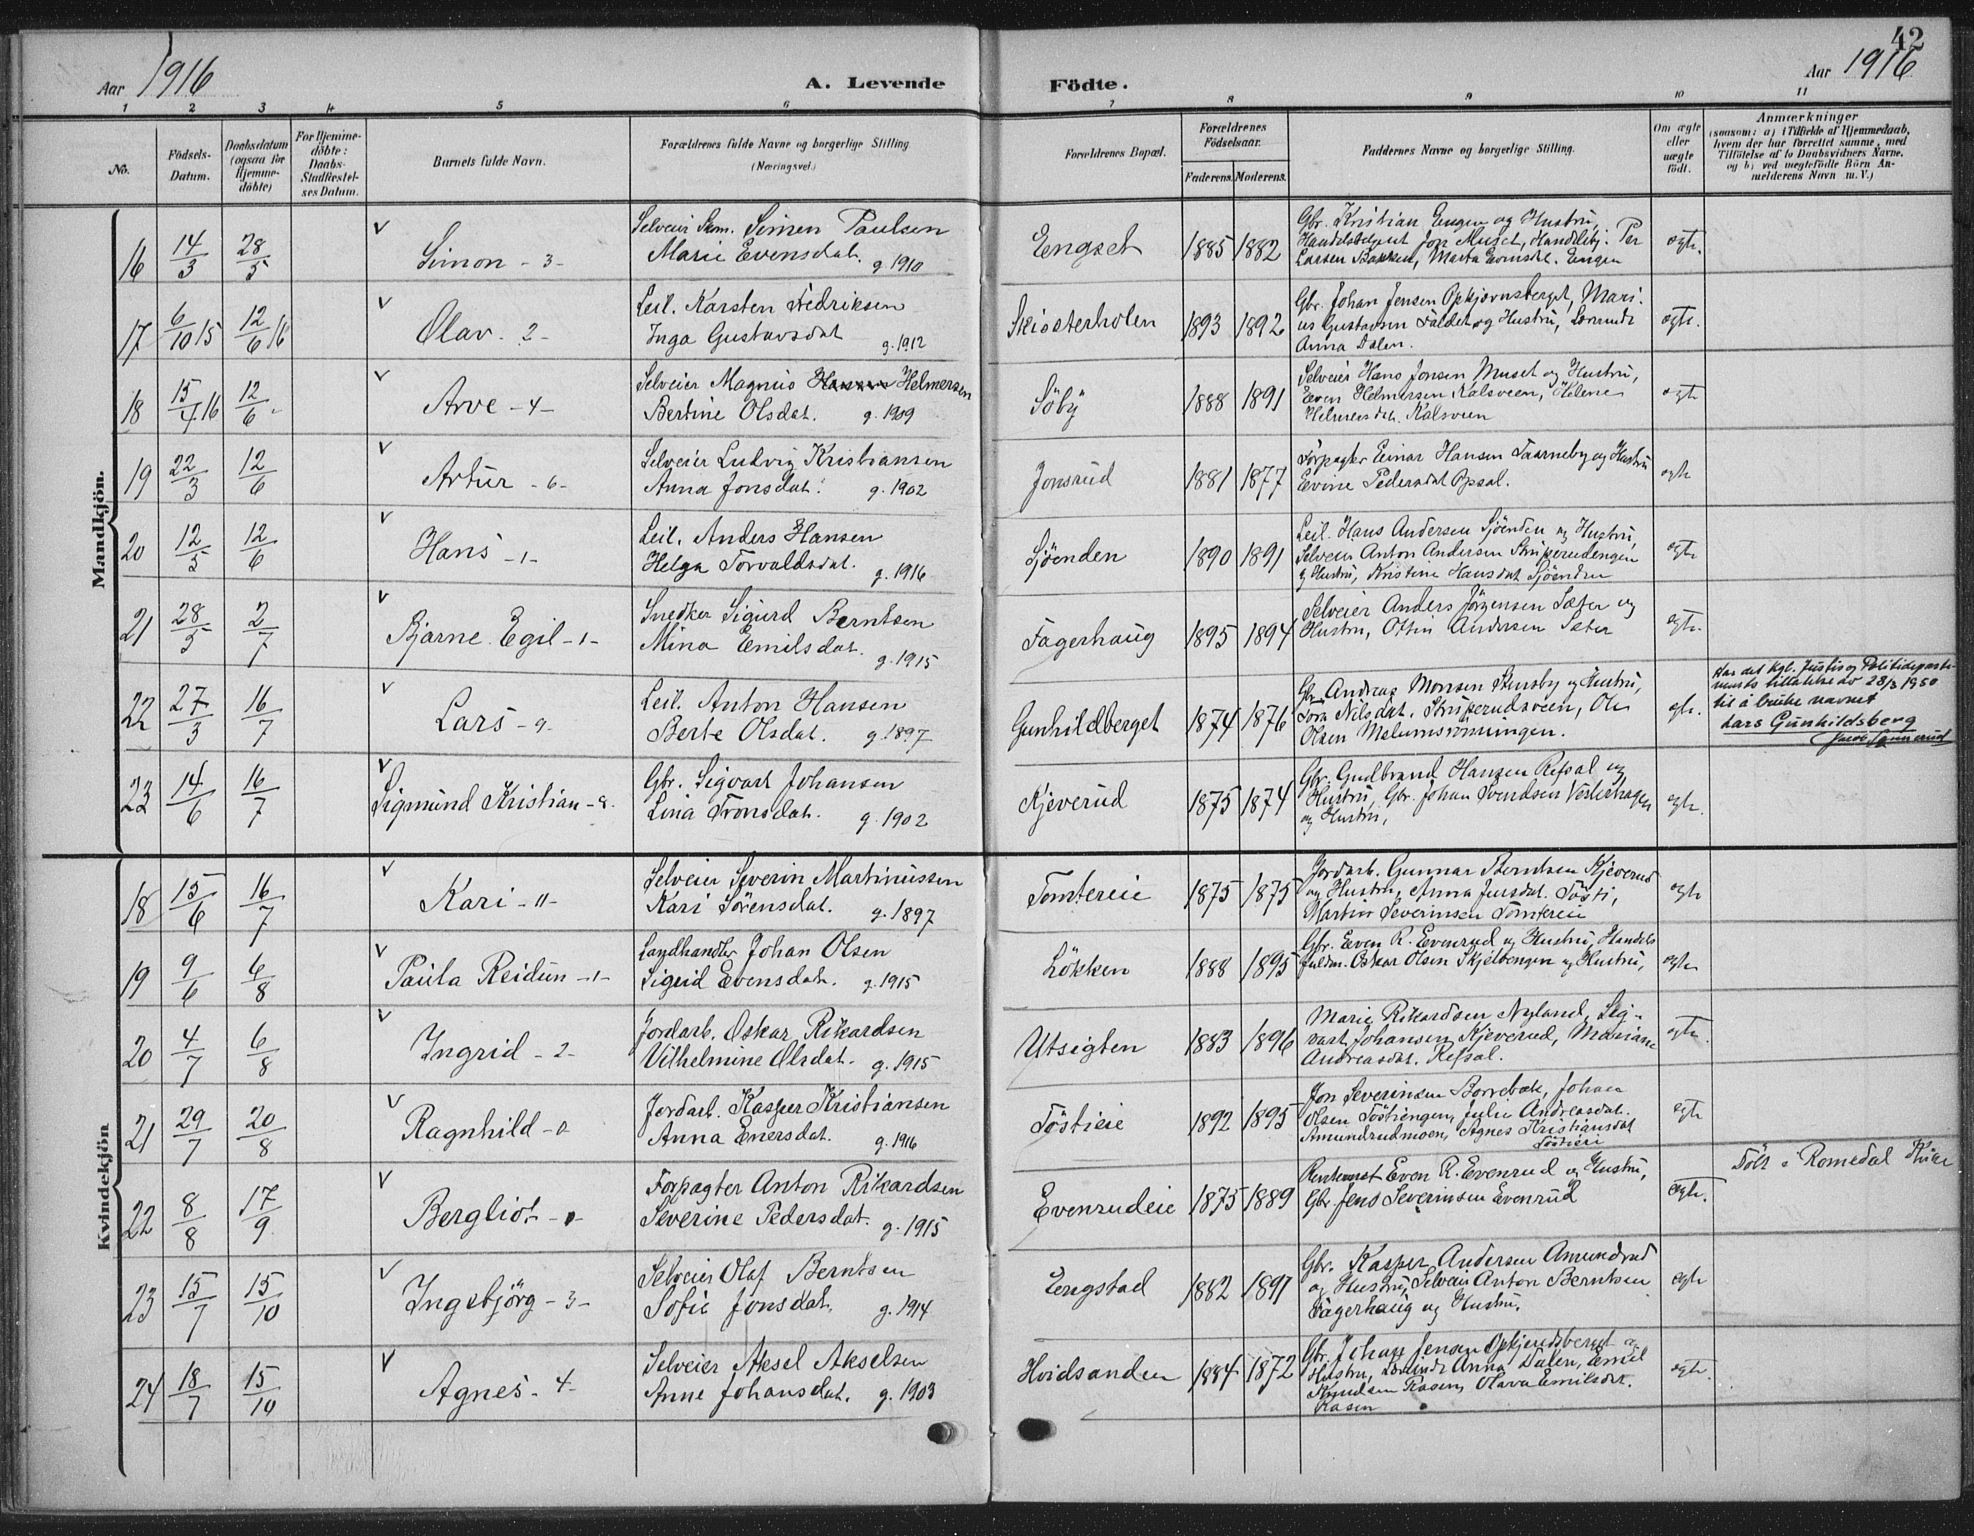 42
Aar 1916
A. Levende
Födte.
Aar 1916
1 2 3 4 5 6 7 8 9 10 11
No.
Födsels-
Datum.
Daabsdatum
(ogsaa for
Hjemme-
döbte)
For Hjemme-
döbte:
Daabs-
Stadfestel-
ses Datum.
Barnets fulde Navn.
Forældrenes fulde Navne og borgerlige Stilling
(Næringsvei.)
Forældrenes Bopæl.
Forældrenes
Födselsaar.
Faderens. Moderens.
Faddernes Navne og borgerlige Stilling.
Om ægte
eller
uægte
födt.
Anmærkninger
(saasom: a) i Tilfælde af Hjemmedaab,
hvem der har forrettet samme, med
Tilföielse af to Daabsvidners Navne.
og b) ved uægtefödte Börn An-
melderens Navn m. V.)
Mandkjön.
16 14/3 28/5 Simon - 3 -
Selveier Simen Paulsen
Marie Evensdat. g. 1910
Engset 1885 1882
Gbr. Kristian Engen og Hustru,
Jon Muset, Per
Larsen Bakken, Marta Evensdt. Engen
egte.
17 6/10 15 12/6 16 Olav - 2 -
Leil. Karsten Fredriksen
Inga Gustavsdat g. 1912
Skiosterholen 1893 1892
Gbr. Johan Jensen Opkjøvnsberget, Mari-
us Gustavsen Faldet og Hustru,
Anna Dalen.
egte.
18 15/4 16 12/6 - Arve - 4 -
Selveier Magnus Hansen Helmersen
Bertine Olsdat. g. 1909
Söby 1888 1891
Selveier Hans Jonsen Muset og Hustru,
Even Helmersen Kalsveen, Helene
Helmersdat. Kalsveen
egte
19 22/3 12/6 Artur - 6 -
Selveier Ludvig Kristiansen
Anna Jonsdat. g. 1902
Jonsrud 1881 1877
Forpagter Einar Hansen Taarneby og Hustru
Evine Pedersdat Opsal.
egte
20 12/5 12/6 Hans - 1 -
Leil. Anders Hansen
Helga Torvaldsdat. g. 1916
Sjöenden 1890 1891
Leil. Hans Andersen Sjöenden og Hustru,
Selveier Anton Andersen Skriperudengen
og Hustru, Kristine Hansdat Sjöenden
egte
21 28/5 2/7 Bjarne Egil - 1 -
Snedker Sigurd Berntsen
Mina Emilsdat. g. 1915
Fagerhaug 1895 1894
Selveier Anders Jörgensen Sæter og
Hustru, Ottin Andersen Sæter
egte.
22 27/3 16/7 Lars - 9 -
Leil. Anton Hansen
Berte Olsdat. g. 1897
Gunhildberget 1874 1876
Gbr. Andreas Monsen Stensby og Hustru,
Tora Nilsdat. Skriperudsveen, Ole
Olsen Melumsröningen.
egte.
Har det kgl. Justis og Politideparte-
ments tillatelse av 28/3 1950
til å bruke navnet
Lars Gunhildsberg
23 14/6 16/7 Sigmund Kristian - 9 -
Gbr. Sigvart Johansen
Lina Tronsdat. g. 1902
Kjeverud 1875 1874
Gbr. Gudbrand Hansen Refsal og
Hustru, Gbr. Johan Svendsen Vesterhagen
og Hustru,
egte.
Kvindekjön
18 15/6 16/7 Kari - 11 -
Selveier Severin Martinussen
Kari Sörensdat. g. 1897
Tomtereie 1875 1875
Jordarb. Gunnar Berntsen Kjeverud
og Hustru, Anna Tösti,
Martin Severinsen Tomtereie
egte
19 9/6 6/8 Paula Reidun - 1 -
Landhandler Johan Olsen
Sigrid Evensdat. g. 1915
Lökken 1888 1895
Gbr. Even R. Evenrud og Hustru, Handels
fuldm. Oskar Olsen Skjelbengen og Hustru,
egte
20 4/7 6/8 Ingrid - 2 -
Jordarb. Oskar Rikardsen
Vilhelmine Olsdat. g. 1915
Utsigten 1883 1896
Marie Rikardsen Nyland, Sig-
vart Johansen Kjeverud, Mariane
Andreasdat. Refsal.
egte.
21 29/7 20/8 Ragnhild - 0
Jordarb. Kasper Kristiansen
Anna Enersdat. g. 1916
Töstieie 1892 1895
Jon Severinsen Borrebæk, Johan
Olsen Töstiengen, Julie Andreasdat.
Amundrudmoen, Agnes Kristiansdat
Töstieie
egte
22 8/8 17/9 Bergliot - 0 -
Forpagter Anton Rikardsen
Severine Pedersdat. g. 1915
Evenrudeie 1875 1889
Even R. Evenrud og Hustru,
Gbr. Jens Severinsen Evenrud
egte.
Födt i Romedal
23 15/7 15/10 Ingebjörg - 3 -
Selveier Olaf Berntsen
Sofie Jonsdat. g. 1914
Engstad 1882 1891
Gbr. Kasper Andersen Amundrud
og Hustru, Selveier Anton Berntsen
Fagerhaug og Hustru.
egte
24 18/7 15/10 Agnes - 4 -
Selveier Aksel Akselsen
Anne Johansdat. g. 1903
Hvidsanden 1884 1872
Gbr. Johan Jensen Opkjøvnsberget og
Hustru, Anna Dalen, Emil
Knudsen Kasen, Olava Emilsdat.
Kasen
egte.